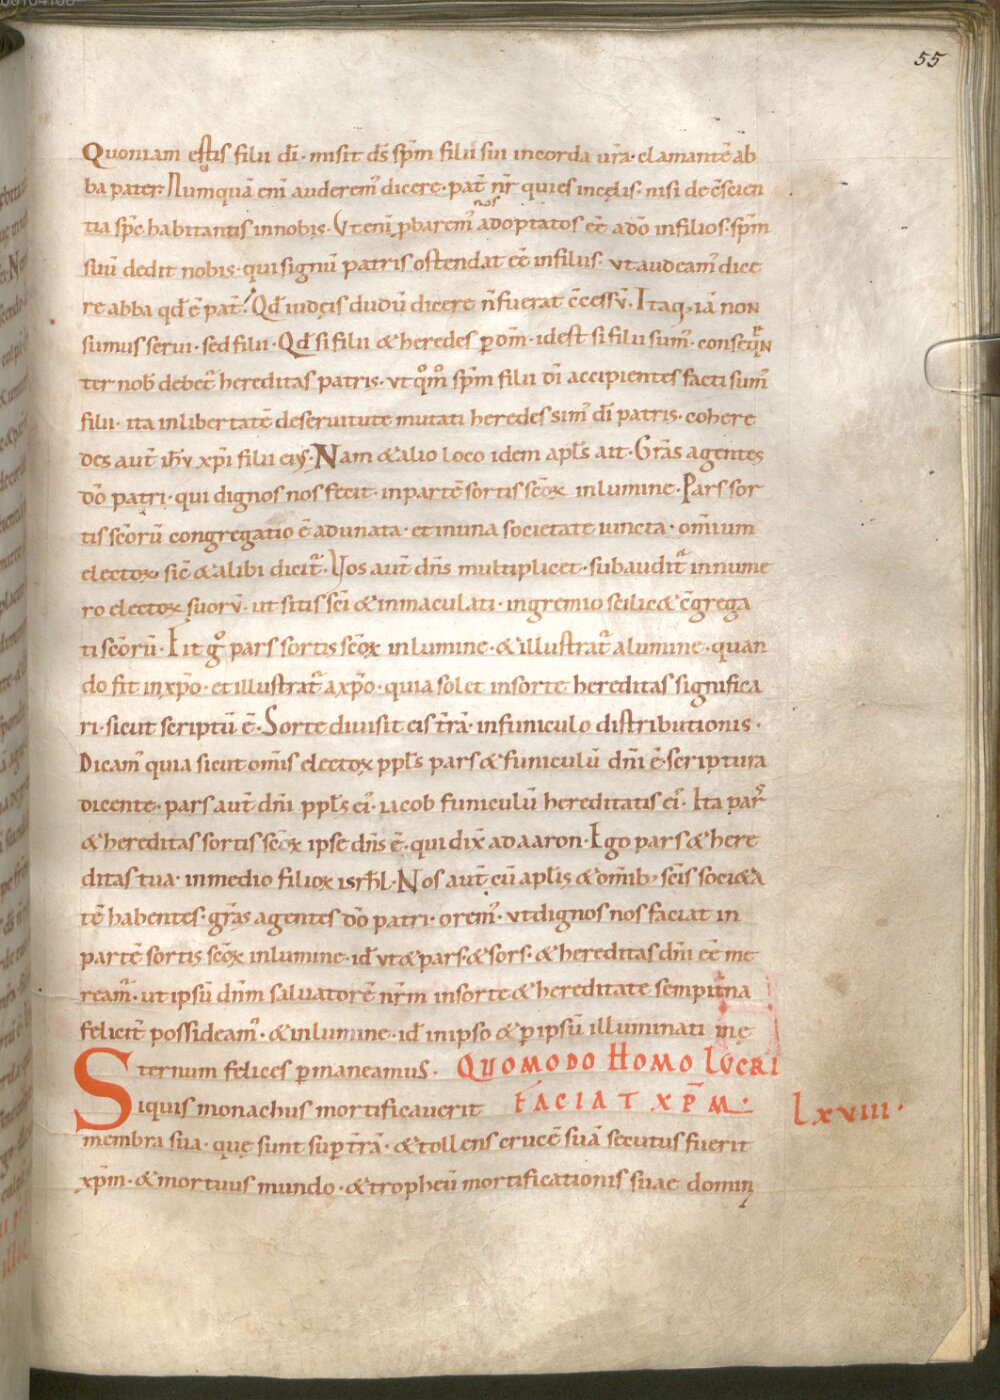 55
Quoniam estis filii dī · misit dſ̄ spm̄ filii sui incorda ur̄a · clamantē ab
ba pater · Numquā eni auderem᾽ dicere · pat̄ nr̄ qui es incęlis · nisi de c̄scien
tia sp̄c habitantis innobis · Ut eni pbarem᾽ nos adoptatos eē adō infilios · spm̄
suū dedit nobis · qui signū patris ostendat eē infilius · ut audeam᾽ dice
re abba qđ ē pat̄ · Qđ iudęis dudū dicere n̄ fuerat c̄cessū · Itaq; iā non
sumus serui · sed filii · Qđ si filii & heredes p om̄ · idest si filii sum᾽ · conseqn̄
ter nob̄ debet᷑ hereditas patris · ut qm̊o᷑ spm̄ filii dī accipientes facti sum᾽
filii · ita inlibertatē deseruitute mutati heredes sim᾽ dī patris · cohere
des aut̄ ih̄u xp̄i filii ei᾽ · Nam & alio loco idem apl̄s ait · Grās agentes
dō patri · qui dignos nos fecit · inpartē sortis scōꝝ inlumine · Pars sor
tis scōrū congregatio ē adunata · et inuna societate iuncta · omīum
electoꝝ sic̄ & alibi dicit᷑ · Uos aut̄ dn̄s multiplicet · subaudit᷑ in nume
ro electoꝝ suorū · ut sitis scī & inmaculati · ingremio scilic& c̄grega
ti scōrū · Fit g̊ pars sortis scōꝝ inlumine · & illustrat᷑ alumine · quan
do fit inxp̄o · et illustrat᷑ axp̄o · quia solet insorte hereditas significa
ri · sicut scriptū ē · Sorte diuisit eis tr̄ā · infuniculo distributionis ·
Dicam᾽ quia sicut om̄is electoꝝ ppl̄s pars & funiculū dn̄i ē · scriptura
dicente · pars aut̄ dn̄i ppl̄s ei᾽ · iacob funiculū hereditatis ei᾽ · Ita par᾽
& hereditas sortis scōꝝ ipse dn̄s ē · qui dix̄ adaaron · Ego pars & here
ditas tua · inmedio filioꝝ isrl̄ · Nos aut̄ cū apl̄is & omīb; scīs soci&a
tē habentes · grās agentes dō patri · orem᾽ · ut dignos nos faciat in
partē sortis scōꝝ inlumine · iđ ut & pars · & sors · & hereditas dn̄i eē me
ream᾽ · ut ipsū dn̄m saluatorē nr̄m insorte & hereditate sempit̄na
felicit̄ possideam᾽ · & inlumine · iđ inipso & p ipsū illuminati inę
ternum felices pmaneamus · QUOMODO HOMO LUCRI
Siquis monachus mortificauerit FACIAT XP̄M · lxviii ·
membra sua · quę sunt sup tr̄ā · & tollens crucē suā secutus fuerit
xp̄m · & mortuus mundo · & tropheū mortificationis suae domin